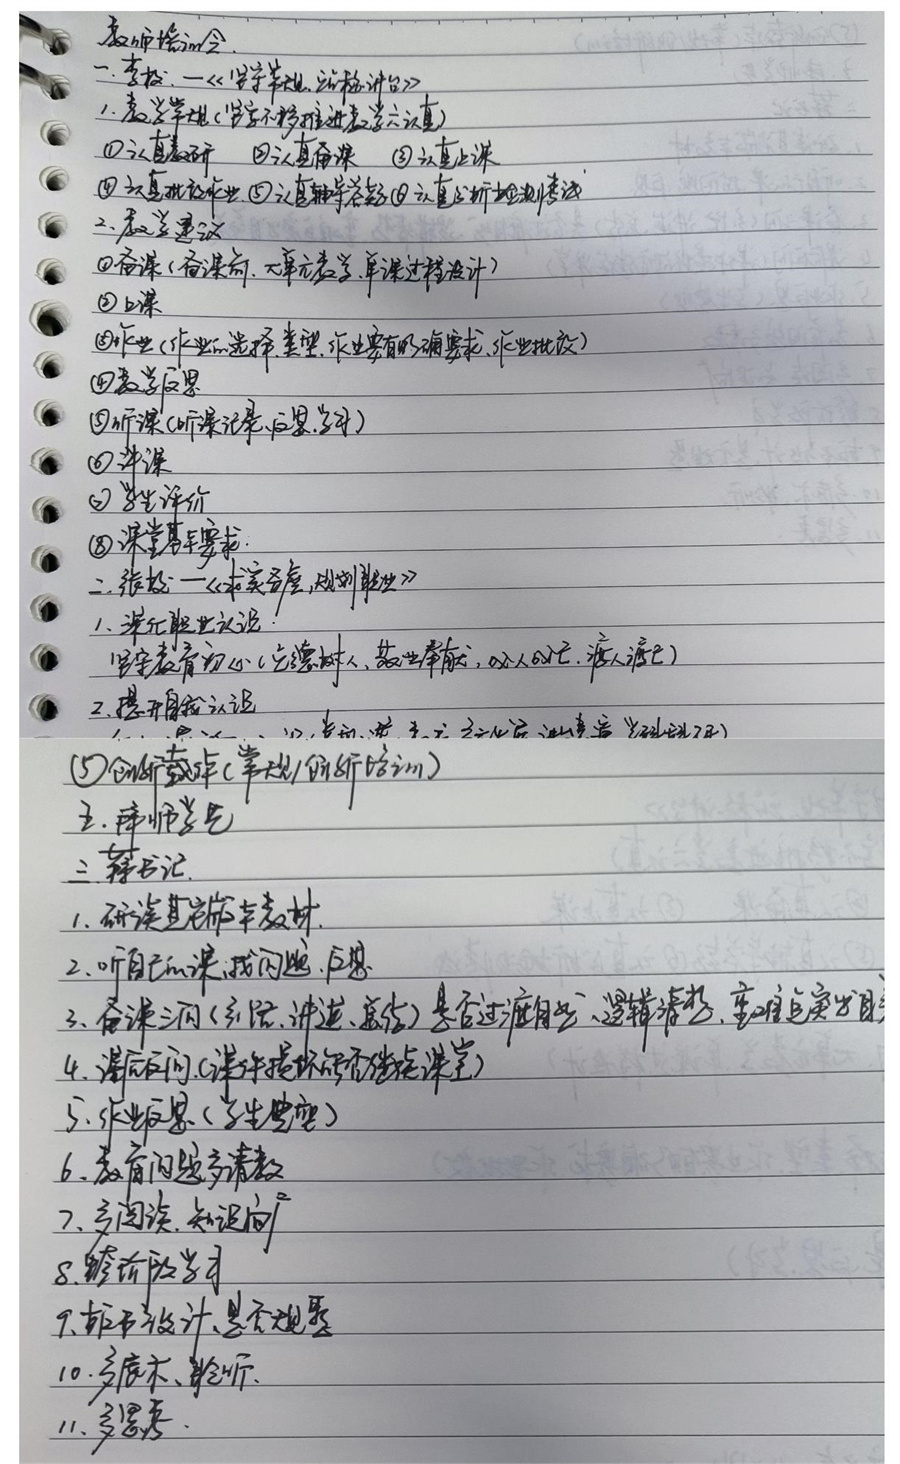 教师培训会.
一.李校.—《坚守常规,站稳讲台》
1.教学常规(坚定不移推进教学六认真)
①认真教研 ②认真备课 ③认真上课
④认真批改作业 ⑤认真辅导答疑 ⑥认真分析检测考试
2.教学建议
①备课(备课前、大单元教学、单课过程设计)
②上课
③作业(作业的选择、类型,作业要有明确要求、作业批改)
④教学反思
⑤听课(听课记录、反思、学习)
⑥评课
⑦学生评价
⑧课堂基本要求.
二.张校—《求实奋度,规划职业》
1.深化职业认识.
坚守教育初心(立德树人、敬业奉献,成人成己、渡人渡己)
2.提升自我认识
(5)创新教学(常规/创新培训)
五.拜师学艺
三.薛书记.
1.研读其它版本教材.
2.听自己的课,找问题.反思
3.备课三问(引语、讲道、总结)是否过渡自然、逻辑清楚、重难点突出
4.课后反问(课件损坏能否继续课堂)
5.作业反思(学生典型)
6.教育问题多请教
7.多阅读.知识面广
8.跨阶段学习
9.板书设计、是否规整
10.多展示、聆听.
11.多思考.